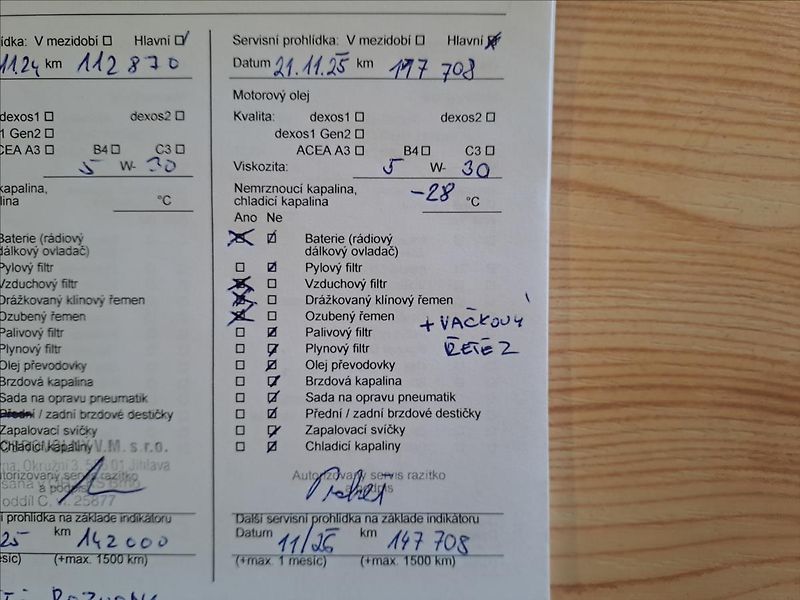 ídka: V mezidobí Hlavní
11.24 km 112 870
dexos1 dexos2
1 Gen2
CEA A3 B4 C3
5 W- 30
kapalina,
lina °C
Baterie (rádiový
dálkový ovladač)
Pylový filtr
Vzduchový filtr
Drážkovaný klínový řemen
Ozubený řemen
Palivový filtr
Plynový filtr
Olej převodovky
Brzdová kapalina
Sada na opravu pneumatik
Přední / zadní brzdové destičky
Zapalovací svíčky
Chladicí kapaliny
V.M. s.r.o.
Okružní 3, Jihlava
torizovaný servis razítko
a podpis
oddíl C, 25877
í prohlídka na základě indikátoru
25 km 142 000
síc) (+max. 1500 km)
Servisní prohlídka: V mezidobí Hlavní
Datum 21.11.25 km 117 708
Motorový olej
Kvalita: dexos1 dexos2
dexos1 Gen2
ACEA A3 B4 C3
Viskozita: 5 W- 30
Nemrznoucí kapalina,
chladicí kapalina -28 °C
Ano Ne
Baterie (rádiový
dálkový ovladač)
Pylový filtr
Vzduchový filtr
Drážkovaný klínový řemen
Ozubený řemen
+ VAČKOVÝ
ŘETĚZ
Palivový filtr
Plynový filtr
Olej převodovky
Brzdová kapalina
Sada na opravu pneumatik
Přední / zadní brzdové destičky
Zapalovací svíčky
Chladicí kapaliny
Autorizovaný servis razítko
a podpis
Další servisní prohlídka na základě indikátoru
Datum 11/26 km 147 708
(+max. 1 měsíc) (+max. 1500 km)